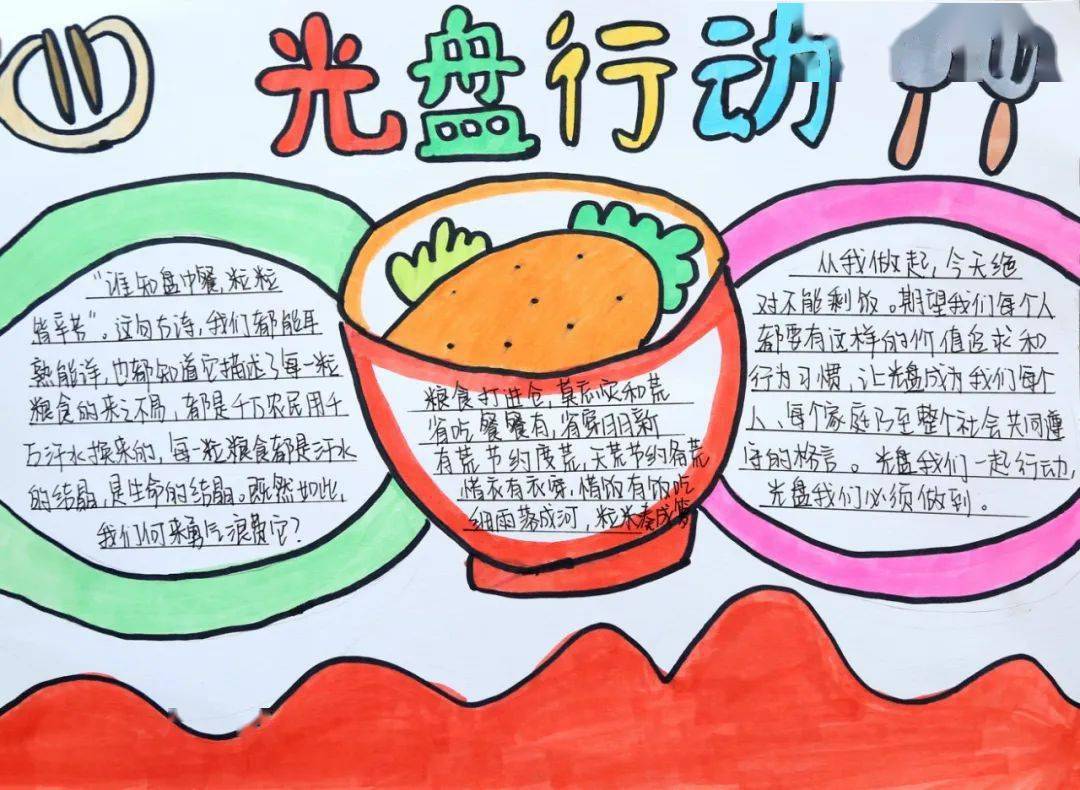 光盘行动
“谁知盘中餐,粒粒
皆辛苦”。这句古诗,我们都能耳
熟能详,也都知道它描述了每一粒
粮食的来之不易,都是千万农民用千
万汗水换来的,每一粒粮食都是汗水
的结晶,是生命的结晶。既然如此,
我们何来勇气浪费它?
粮食打进仓,莫忘灾和荒
省吃餐餐有,省穿日日新
有荒节约度荒,无荒节约备荒
惜衣有衣穿,惜饭有饭吃
细雨落成河,粒米凑成箩
从我做起,今天绝
对不能剩饭。期望我们每个人
都要有这样的价值追求和
行为习惯,让光盘成为我们每个
人、每个家庭乃至整个社会共同遵
守的格言。光盘我们一起行动,
光盘我们必须做到。